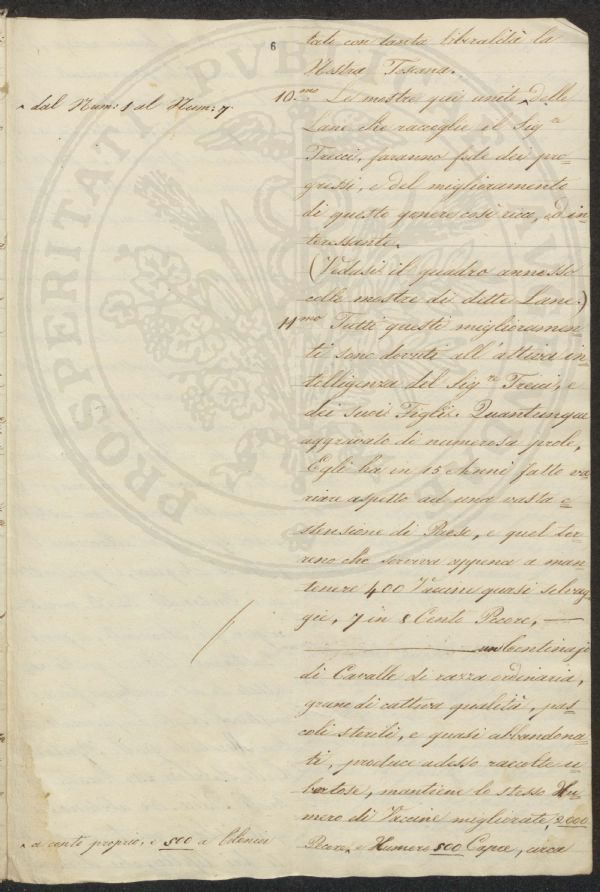 6
tate con tanta liberalità la
Nostra Toscana.
^ dal Num: 1 al Num: 7.
10.mo Le mostre qui unite ^ delle
Lane che raccoglie il Sig.re
Trecci, faranno fede dei pro=
gressi, e del miglioramento
di questo genere così ricco, ed in=
teressante.
(Vedasi il quadro annesso
colle mostre di dette Lane.)
11.mo Tutti questi miglioramen=
ti sono dovuti all'attiva in=
telligenza del Sig.re Trecci, e
dei suoi Figli. Quantunque
aggravato di numerosa prole,
Egli ha in 15 Anni fatto va=
riare aspetto ad una vasta e=
stensione di Paese, e quel ter=
reno che serviva appena a man=
tenere 400 Vaccine quasi selvag=
gie, 7 in 8 Cento Pecore,
un Centinajo
di Cavalle di razza ordinaria,
grano di cattiva qualità, pas=
coli sterili, e quasi abbandona=
ti, produce adesso raccolte u=
bertose, mantiene lo stesso Nu=
mero di Vaccine migliorate, 2000
Pecore, ^ e Numero 500 Capre, circa
^ a conto proprio, e 500 a
PROSPERITATI PVBLICAE AVGENDAE